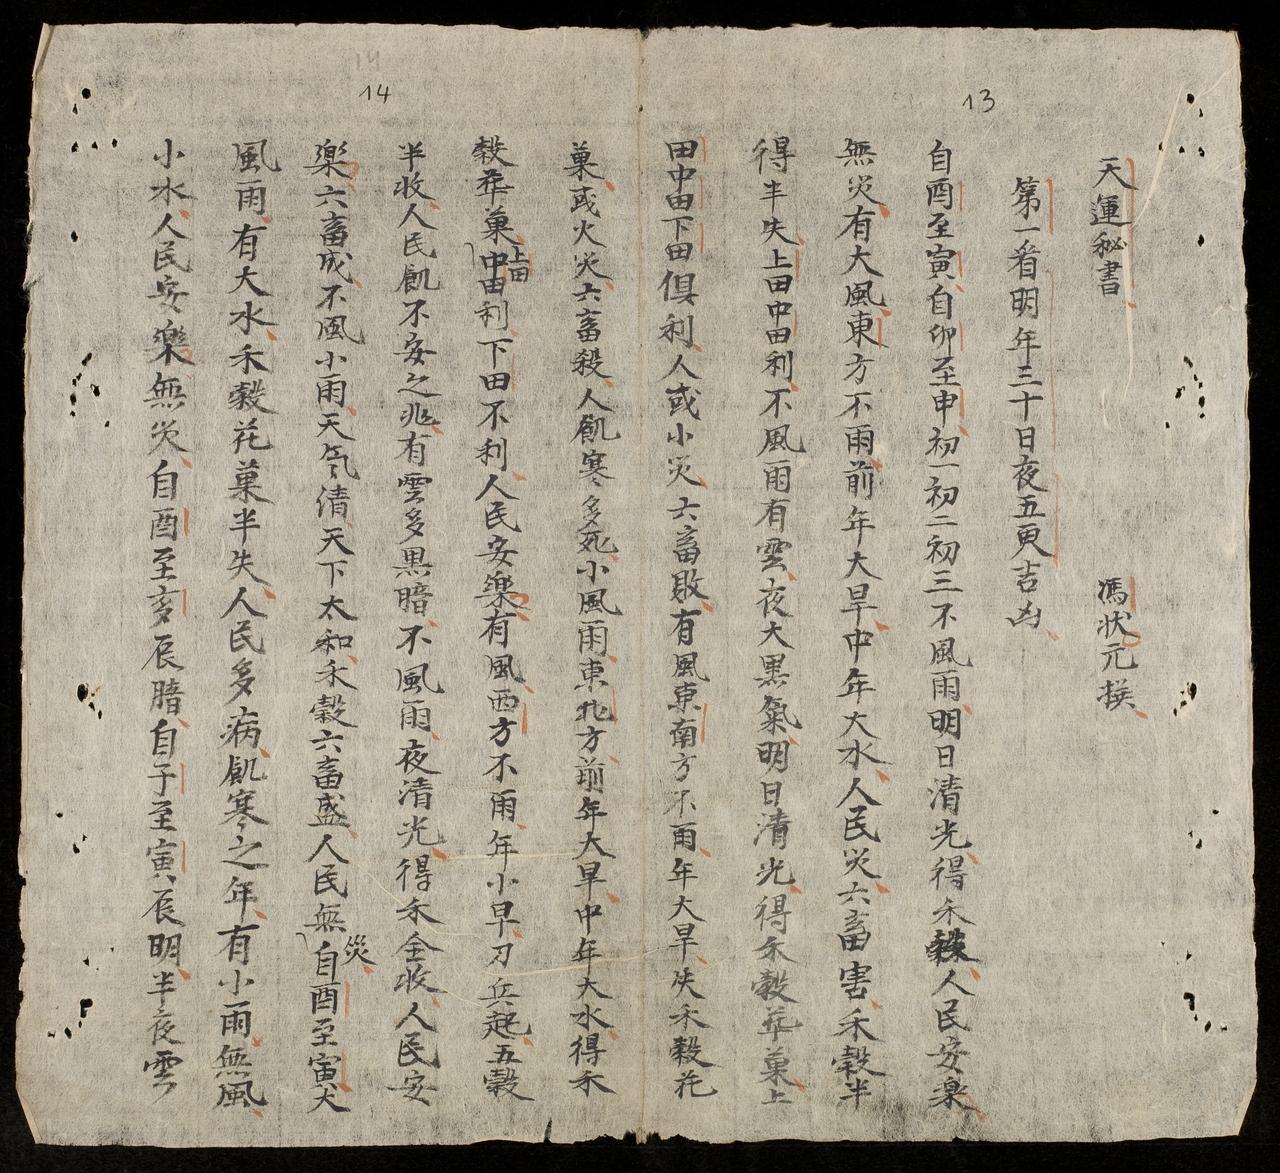 13
天運秘書 馮状元撰
第一看明年三十日夜五更吉凶
自酉至寅自卯至申初一初二初三不風雨明日清光得禾穀人民安楽
無災有大風東方不雨前年大旱中年大水人民災六畜害禾穀半
得半失上田中田利不風雨有雲夜大黒氣明日清光得禾穀花菓上
田中田下田俱利人或小災六畜敗有風東南方不雨年大旱失禾穀花
菓或火災六畜殺人飢寒多死小風雨東北方前年大旱中年大水得禾
穀花菓上田中田利下田不利人民安楽有風西方不雨年小旱刀兵起五穀
半收人民飢不安之兆有雲多黒暗不風雨夜清光得禾全收人民安
14
楽六畜成不風小雨天気清天下太和禾穀六畜盛人民無災自酉至寅大
風雨有大水禾穀花菓半失人民多病飢寒之年有小雨無風
小水人民安樂無災自酉至亥辰暗自子至寅辰明半夜雲